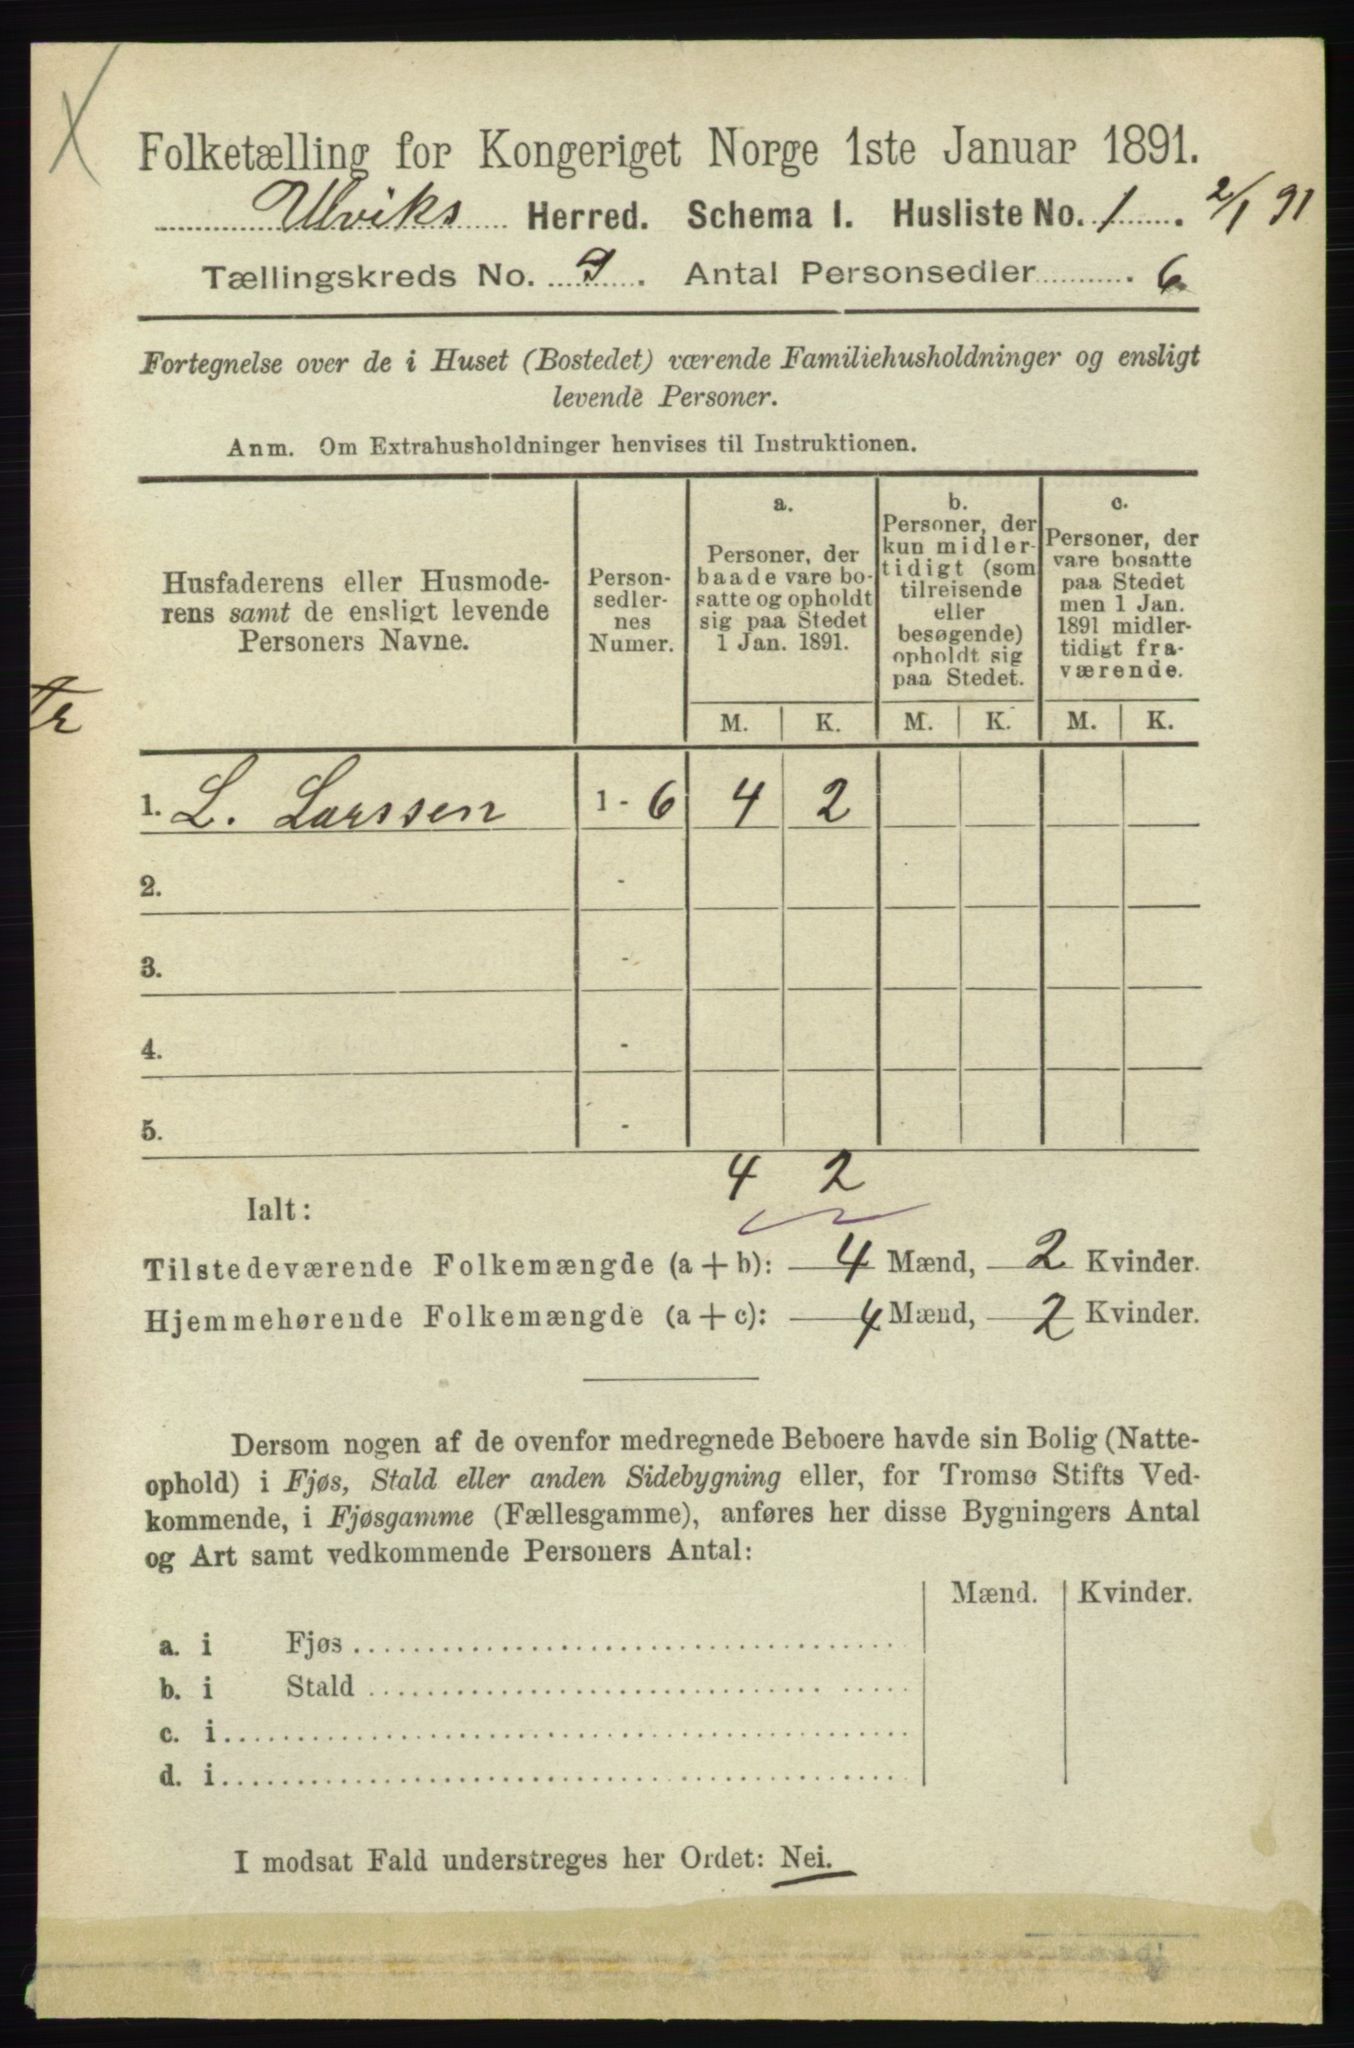 Folketælling for Kongeriget Norge 1ste Januar 1891.
Ulviks Herred. Schema I. Husliste No. 1. 2/1 91
Tællingskreds No. 9. Antal Personsedler 6
Fortegnelse over de i Huset (Bostedet) værende Familiehusholdninger og ensligt
levende Personer.
Anm. Om Extrahusholdninger henvises til Instruktionen.
Husfaderens eller Husmode-
rens samt de ensligt levende
Personers Navne.
Person-
sedler-
nes
Numer.
a.
Personer, der
baade vare bo-
satte og opholdt
sig paa Stedet
1 Jan. 1891.
b.
Personer, der
kun midler-
tidigt (som
tilreisende
eller
besøgende)
opholdt sig
paa Stedet.
c.
Personer, der
vare bosatte
paa Stedet
men 1 Jan.
1891 midler-
tidigt fra-
værende.
M. K. M. K. M. K.
1. L. Larssen 1 - 6 4 2
2. -
3. -
4. -
5. -
4 2
Ialt:
Tilstedeværende Folkemængde (a + b): 4 Mænd, 2 Kvinder.
Hjemmehørende Folkemængde (a + c): 4 Mænd, 2 Kvinder.
Dersom nogen af de ovenfor medregnede Beboere havde sin Bolig (Natte-
ophold) i Fjøs, Stald eller anden Sidebygning eller, for Tromsø Stifts Ved-
kommende, i Fjøsgamme (Fællesgamme), anføres her disse Bygningers Antal
og Art samt vedkommende Personers Antal:
Mænd. Kvinder.
a. i Fjøs
b. i Stald
c. i
d. i
I modsat Fald understreges her Ordet: Nei.